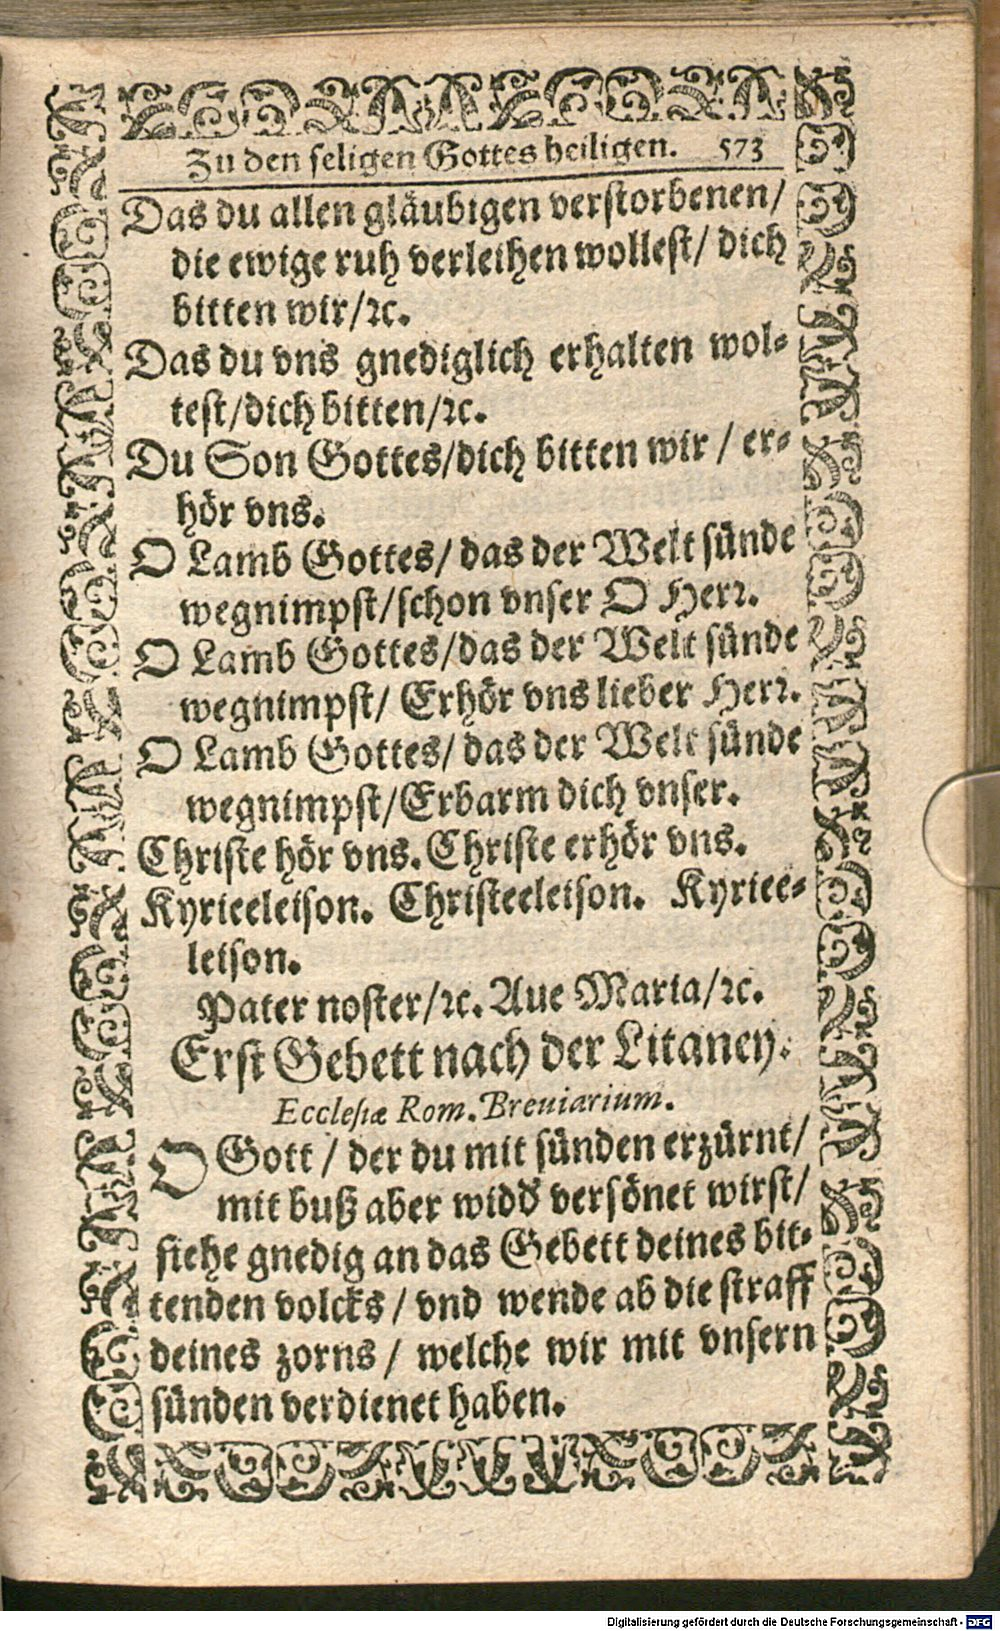 Zu den seligen Gottes heiligen. 573
Das du allen gläubigen verstorbenen/
die ewige ruh verleihen wollest/ dich
bitten wir/ꝛc.
Das du vns gnediglich erhalten wol-
test/dich bitten/ꝛc.
Du Son Gottes/dich bitten wir / er-
hör vns.
O Lamb Gottes/ das der Welt sünde
wegnimpst/schon vnser O Herꝛ.
O Lamb Gottes/das der Welt sünde
wegnimpst/ Erhör vns lieber Herꝛ.
O Lamb Gottes/ das der Welt sünde
wegnimpst/Erbarm dich vnser.
Christe hör vns. Christe erhör vns.
Kyrieeleison. Christeeleison. Kyriee-
leison.
Pater noster/ꝛc. Aue Maria/ꝛc.
Erst Gebett nach der Litaney.
Ecclesiæ Rom. Breuiarium.
O Gott / der du mit sünden erzürnt/
mit buß aber widď versönet wirst/
siehe gnedig an das Gebett deines bit-
tenden volcks / vnd wende ab die straff
deines zorns / welche wir mit vnsern
sünden verdienet haben.
Digitalisierung gefördert durch die Deutsche Forschungsgemeinschaft - DFG